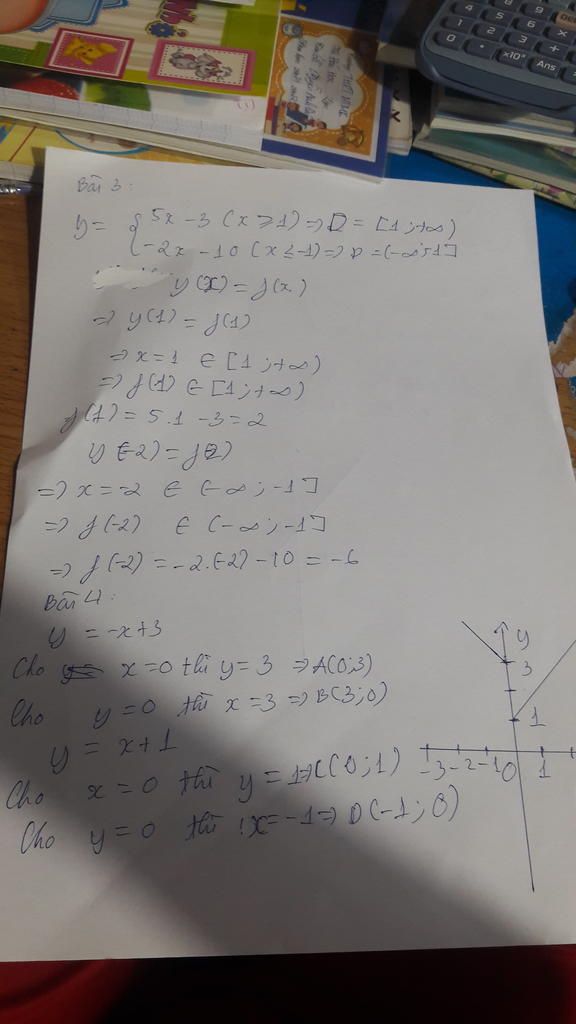 4 5 6
1 2 3 +
0 . ×10ˣ Ans
Bài 3:
y = { 5x - 3 (x ≥ 1) => D = [1; +∞)
-2x - 10 (x ≤ -1) => D = (-∞; -1]
y(x) = f(x)
=> y(1) = f(1)
=> x = 1 ∈ [1; +∞)
=> f(1) ∈ [1; +∞)
f(1) = 5.1 - 3 = 2
y(-2) = f(2)
=> x = -2 ∈ (-∞; -1]
=> f(-2) ∈ (-∞; -1]
=> f(-2) = -2.(-2) - 10 = -6
Bài 4:
y = -x+3
Cho x = 0 thì y = 3 => A(0;3)
Cho y = 0 thì x = 3 => B(3;0)
y = x+1
Cho x = 0 thì y = 1 => C(0;1)
Cho y = 0 thì x = -1 => D(-1;0)
y
3
1
-3 -2 -1 0 1